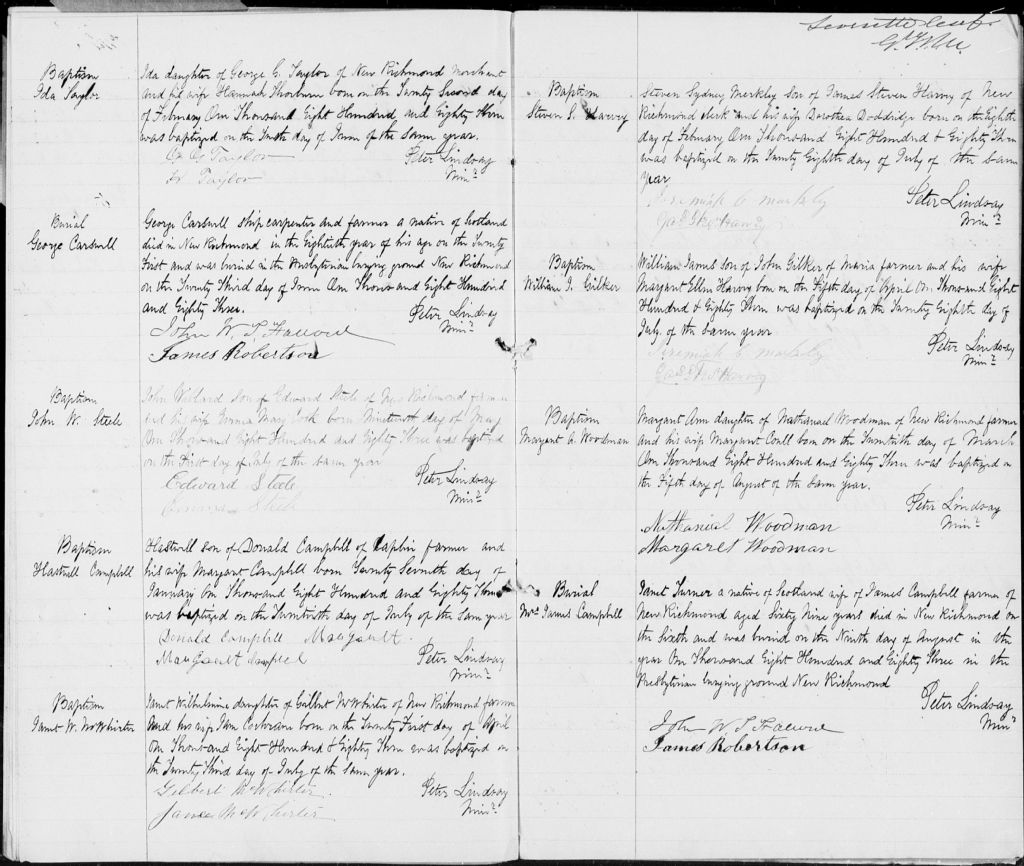 Baptism
Ida Taylor
Ida daughter of George G. Taylor of New Richmond Merchant
and his wife Hannah Thorburn born on the Twenty Second day
of February One Thousand Eight Hundred and Eighty Three
was baptized on the Tenth day of June of the same year.
G G Taylor
H Taylor
Peter Lindsay
Minr.
Burial
George Carswell
George Carswell ship carpenter and farmer a native of Scotland
died in New Richmond in the Eightieth year of his age on the Twenty
First and was buried in the Presbyterian burying ground New Richmond
on the Twenty Third day of June One Thousand Eight Hundred
and Eighty Three.
Peter Lindsay
Minr.
John W. S.
James Robertson
Baptism
John W. Steele
John Willard son of Edward Steele of New Richmond farmer
and his wife Emma Mary born Nineteenth day of May
One Thousand Eight Hundred and Eighty Three was baptized
on the First day of July of the same year
Edward Steele
Steele
Peter Lindsay
Minr.
Baptism
Hastwell Campbell
Hastwell son of Donald Campbell of Caplin farmer and
his wife Margaret Campbell born Twenty Seventh day of
January One Thousand Eight Hundred and Eighty Three
was baptized on the Twentieth day of July of the same year
Donald Campbell Margault.
Margault Campbel
Peter Lindsay
Minr.
Baptism
Janet W. McWhirter
Janet Wilhelmine daughter of Gilbert McWhirter of New Richmond farmer
and his wife Ann Cochran born on the Twenty First day of April
One Thousand Eight Hundred & Eighty Three was baptized on
the Twenty Third day of July of the same year.
Gilbert McWhirter.
James McWhirter
Peter Lindsay
Minr.
Seventh leaf
Baptism
Steven S. Harvy
Steven Sydney Merkley son of James Steven Harvy of New
Richmond clerk and his wife Dorothea Doddridge born on the Eighth
day of February One Thousand Eight Hundred & Eighty Three
was baptized on the Twenty Eighth day of July of the same
year
Jeremiah C markely
Harvy
Peter Lindsay
Minr.
Baptism
William J. Gilker
William James son of John Gilker of Maria farmer and his wife
Margaret Ellen Harvy born on the Fifth day of April One Thousand Eight
Hundred & Eighty Three was baptized on the Twenty Eighth day of
July of the same year
Jeremiah C markely
Harvy
Peter Lindsay
Minr.
Baptism
Margaret A. Woodman
Margaret Ann daughter of Nathaniel Woodman of New Richmond farmer
and his wife Margaret Coull born on the Twentieth day of March
One Thousand Eight Hundred and Eighty Three was baptized on
the Fifth day of August of the same year.
Nathaniel Woodman
Margaret Woodman
Peter Lindsay
Minr.
Burial
Mrs James Campbell
Janet Turner a native of Scotland wife of James Campbell farmer of
New Richmond aged Sixty Nine years died in New Richmond on
the Sixth and was buried on the Ninth day of August in the
year One Thousand Eight Hundred and Eighty Three in the
Presbyterian burying ground New Richmond
Peter Lindsay
Minr.
John W. S.
James Robertson